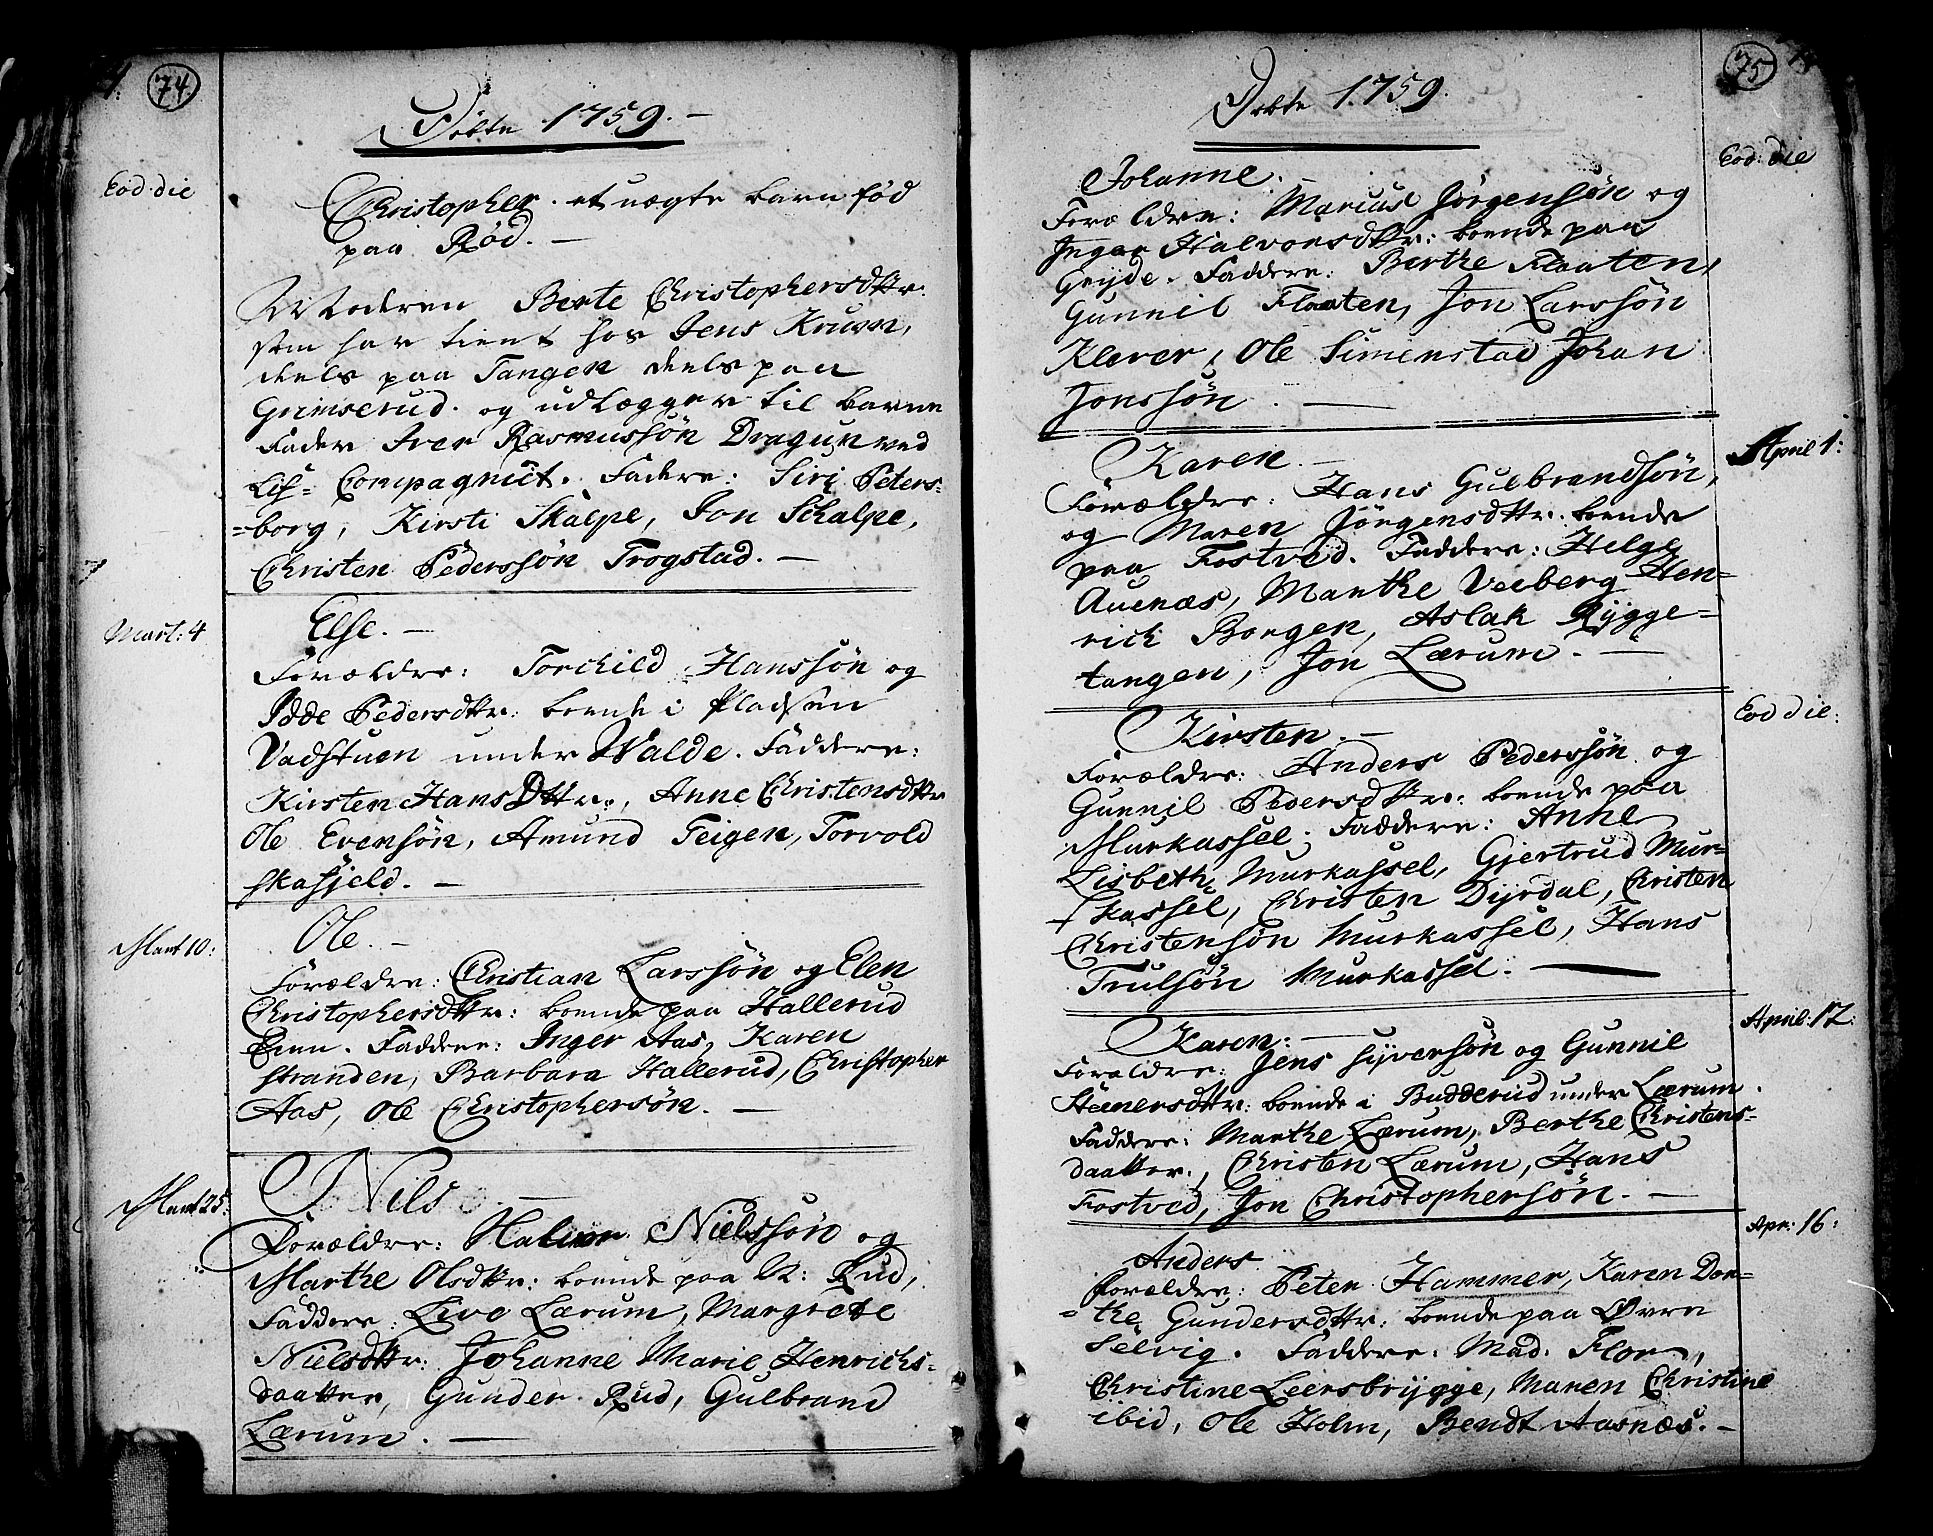 74.
Døbte 1759. –
Eod. die
Christopher. et uægte barn fød
paa Rød. –
Moderen Berte Christophersdttr.
som har tient hos Jens Krumm,
deels paa Tangen deels paa
Grimserud. og udlægger til barne
Fader Iver Rasmussøn Dragun ved
Lif= Compagniet. Fadere: Siri Peters-
=borg, Kirsti Skalpe, Jon Schalpe,
Christen Pederssøn Trogstad. –
Mart: 4
Else. –
Forældre: Torchild Hanssøn og
Idde Pedersdttr: boende i Pladsen
Vadstuen under Walde. Faddere:
Kirsten HansDttr:, Anne Christensdttr
Ole Evensøn, Amund Teigen, Torvold
skafjeld. –
Mart 10:
Ole. –
Forældre: Christian Larssøn og Elen
Christophersdttr: boende paa Hallerud
Eien. Faddere: Inger Aas, Karen
stranden, Barbara Hallerud, Christopher
Aas, Ole Christophersøn. –
Mart 25:
Nils –
Forældre: Halvor Nielssøn og
Marthe Olsdttr: boende paa N: Rud,
Faddere: Live Lærum, Margrete
Nielsdttr: Johanne Marie Henrichs-
daatter, Gunder Rud, Gulbrand
Lærum. –
75
Døbte 1759.
Eod: die
Johanne. –
Foræ ldre: Marcus Jørgensøn og
Inger Halvorsdttr: boende paa
Gryde. Faddere: Berthe Flaaten,
Gunnil Flaaten, Jon Larssøn
Klever, Ole Simenstad Johan
Jonssøn. –
April 1:
Karen. –
Forældre: Hans Gulbrandsøn,
og Maren Jørgensdttr. boende
paa Fostved. Faddere: Helge
Auenæs, Marthe Veeberg Hen-
rich Borgen, Aslak Rygge-
tangen, Jon Lærum. –
Eod die:
Kirsten. –
Forældre: Anders Pederssøn og
Gunnil Pedersdttr: boende paa
Murkassel, Faddere: Anne
Lisbeth Murkassel, Gjertrud Mur-
kassel, Christen Dyrdal, Christen
Christensøn Murkassel, Hans
Trulsøn Murkassel. –
April: 12:
Karen: –
Forældre: Jens syversøn og Gunnil
Steenersdttr: boende i Budderud under Lærum.
Faddere: Marthe Lærum, Berthe Christens-
daatter, Christen Lærum, Hans
Fostved, Jon Christophersøn. –
Apr: 16:
Anders
Forældre: Peter Hammer, Karen Dor-
=the Gundersdttr: boende paa Øvre
Selvig. Faddere: Mad. Flor,
Christine Leersbrygge, Maren Christine
ibid, Ole Holm, Bendt Aasnæs. –